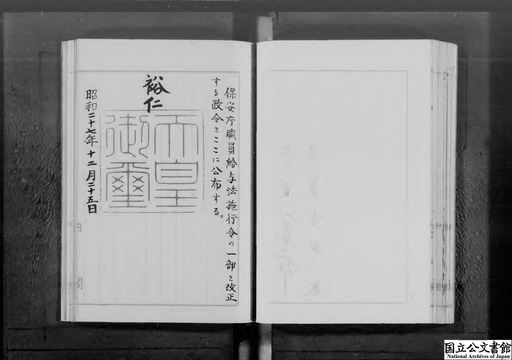 保安庁職員給与法施行令の一部を改正
する政令をここに公布する。
裕仁
天皇
御璽
昭和二十七年十二月二十五日
国立公文書館
National Archives of Japan